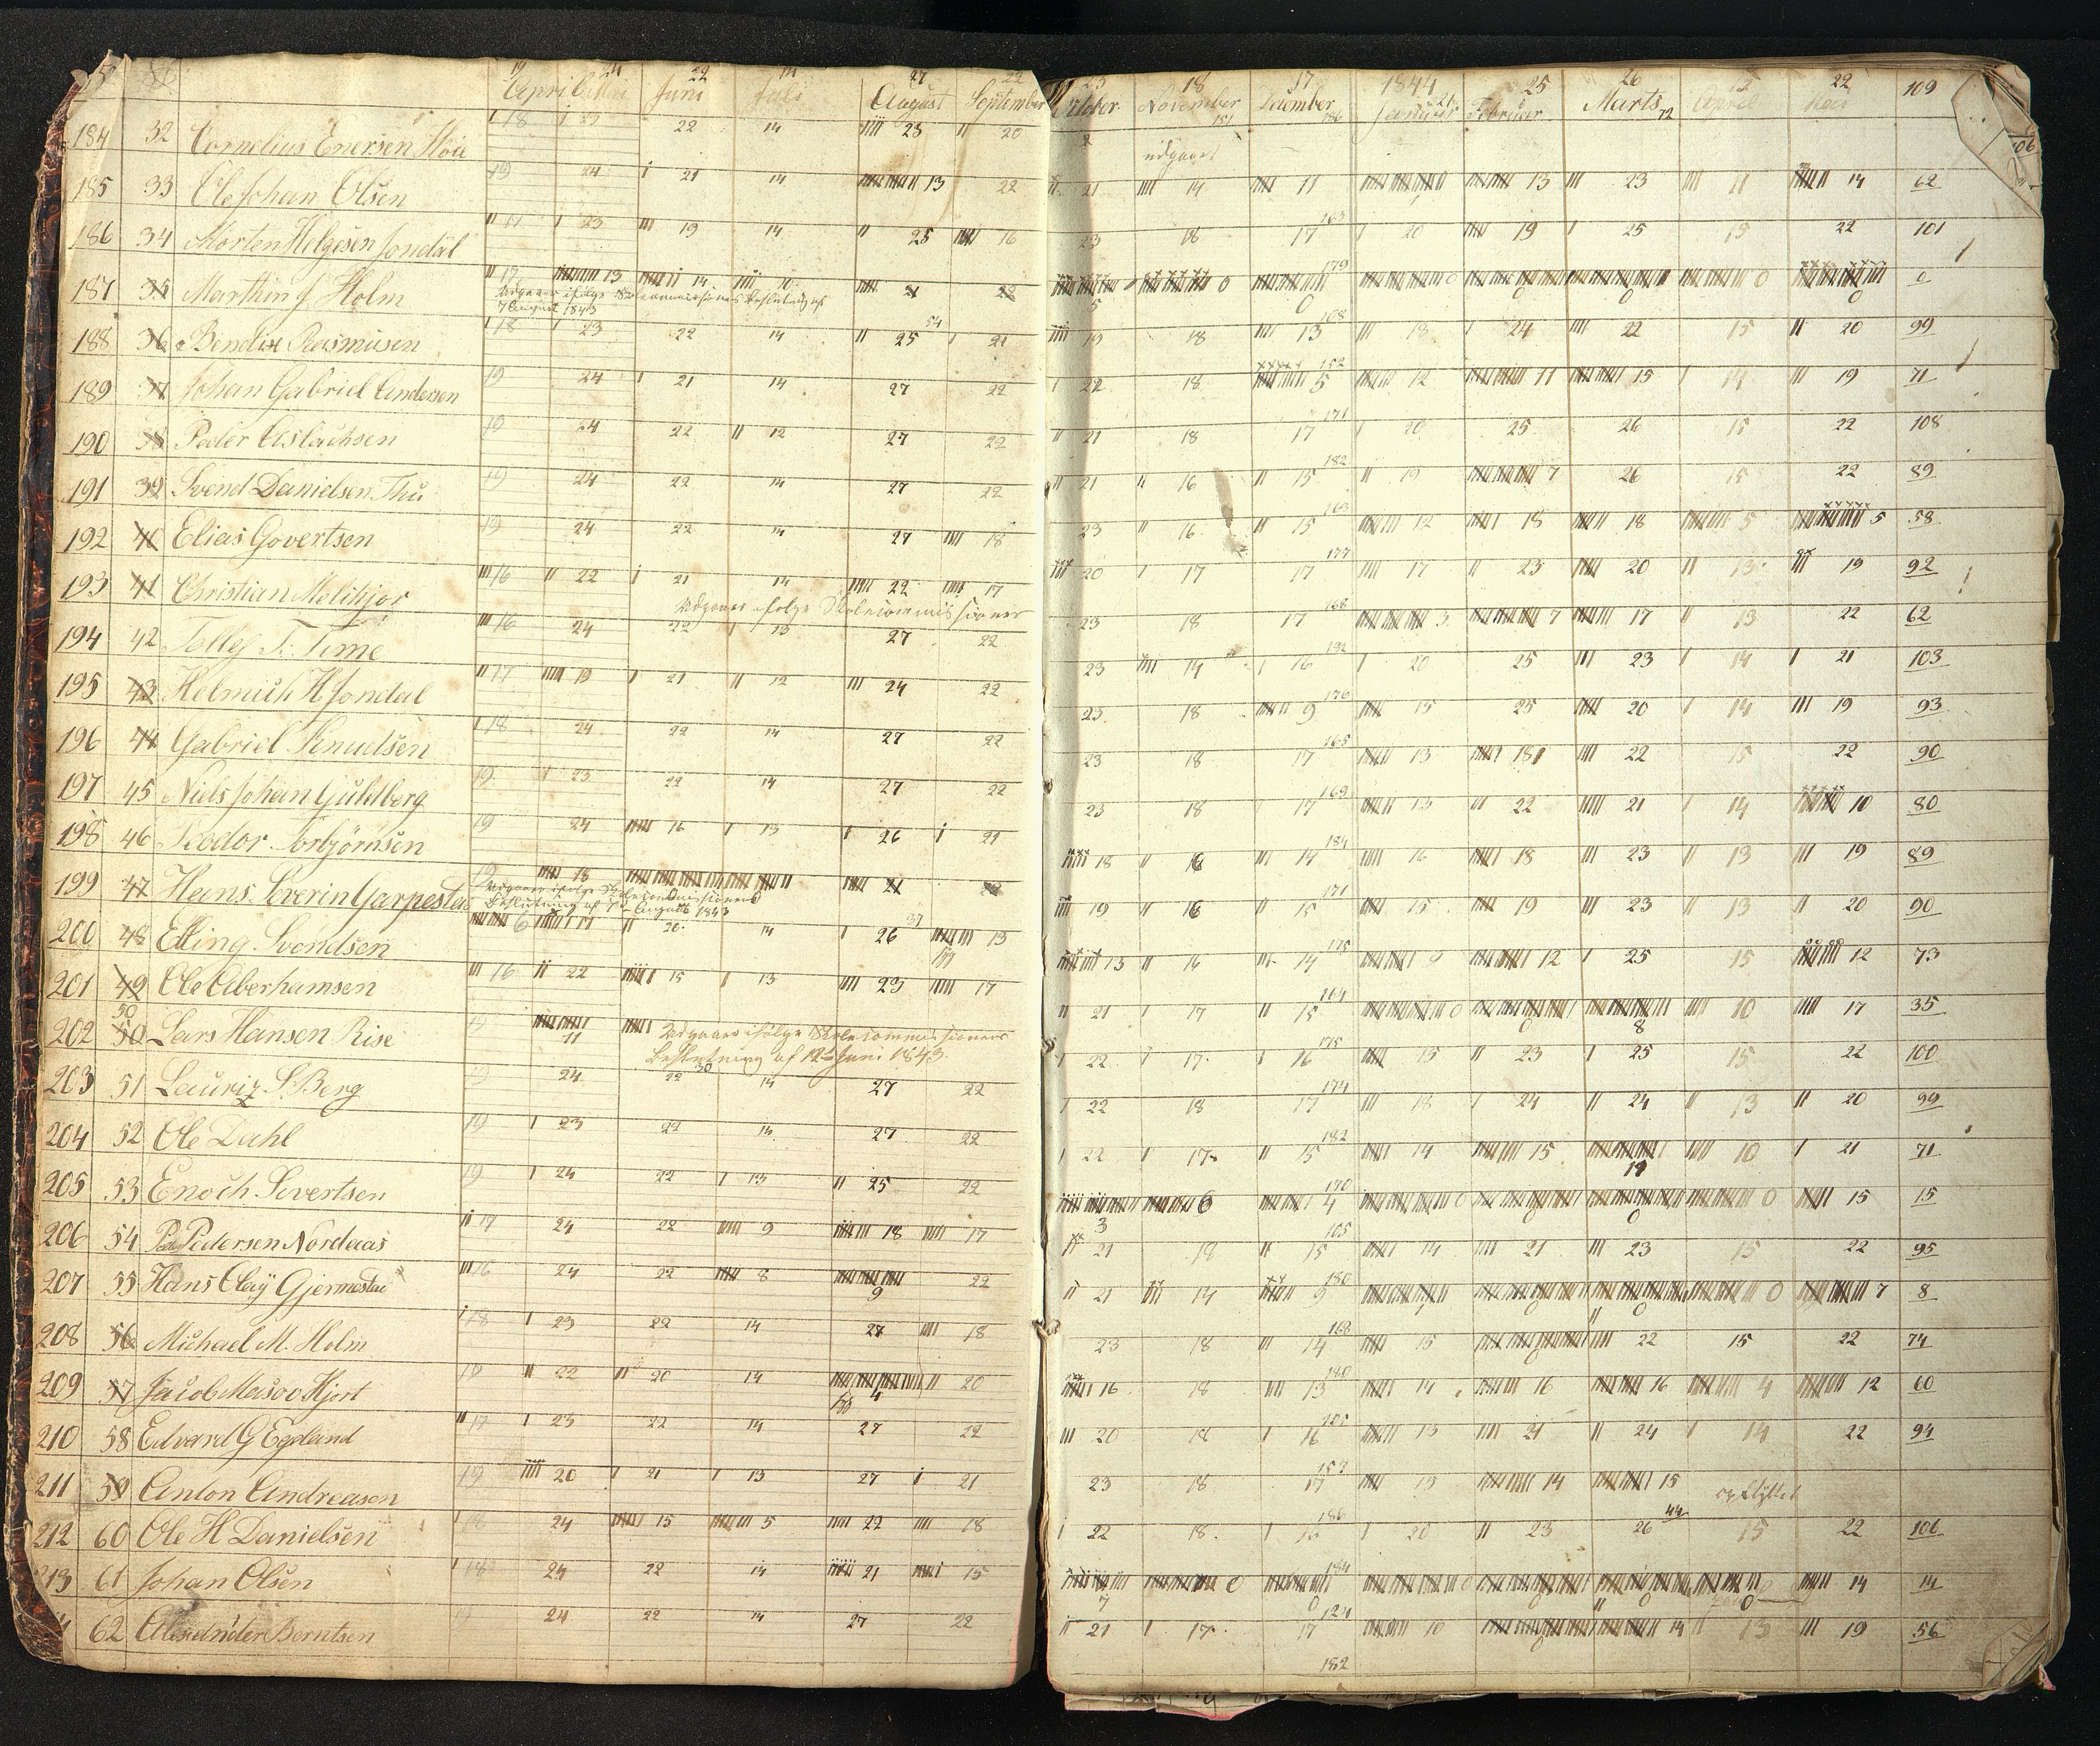 19 24 22 14 27 22
April Juni Juli August September
184 32 Cornelius Enersen 18 23 22 14 23 20
185 33 Ole Johan Olsen 19 24 21 14 13 22
186 34 Morten Helgesen Jondal 17 23 19 14 25 16
187 35 Marthin J. Holm 13 14 10 21 22
Udgaaer ifølge Skolecommissionens Beslutning af
7 August 1843
188 36 Bendix Rasmusen 18 23 22 14 25 54 21
189 37 Johan Gabriel Andersen 19 24 21 14 27 22
190 38 Peder Aslachsen 19 24 22 12 27 22
191 39 Svend Danielsen Thu 19 24 22 14 27 22
192 40 Elias Govertsen 19 24 22 14 27 18
193 41 Christian 16 22 21 14 22 17
Udgaaer ifølge Skolecommissionens
194 42 Tolley T. Time 16 24 22 13 27 22
195 43 Helmich H Jondal 17 19 21 12 24 22
196 44 Gabriel Knudsen 18 24 22 14 27 22
197 45 Niels Johan Guldberg 19 23 22 14 27 22
198 46 Torbjörnsen 19 24 16 13 26 21
199 47 Hans Severin Garpestad 19 18 21 22
Udgaaer ifølge Skolecommissionens
Beslutning af 7 August 1843
200 48 Elling Svendsen 6 17 20 14 26 37 13
201 49 Ole Aberhamsen 16 22 15 13 23 17
50
202 50 Lars Hansen Rise 19 11 Udgaaer ifølge Skolecommissionens
Beslutning af 12 Juni 1843.
203 51 Lauriz S. Berg 19 24 22 30 14 27 22
204 52 Ole Dahl 19 23 22 14 27 22
205 53 Enoch Sivertsen 19 24 22 13 25 22
206 54 Pedersen Nordaas 17 24 22 9 18 17
207 55 Hans Olay Gjermestad 16 24 22 8 9 22
208 56 Michael M. Holm 18 23 22 14 27 18
209 57 Jacob Hjort 22 20 14 4 20
210 58 Edvard G Egeland 17 23 22 14 27 22
211 59 Anton Andreasen 19 20 21 13 27 21
212 60 Ole H Danielsen 18 24 15 5 22 18
213 61 Johan Olsen 18 24 22 14 21 15
62 Alexander Berntsen 24 22 14 27 22
23 18 17 1844 25 26 15 22 109
October November December Januar 21 Februar Marts April Mai
181 186 72
udgaaet
106
21 14 11 7 13 23 11 14 62
163
23 18 17 20 19 25 15 22 101
179
5 0 0 0 0 0 0 0 0
108
19 18 13 18 24 22 15 20 99
152
22 18 5 12 11 15 14 19 71
171
21 18 17 20 25 26 15 22 108
182
21 16 15 19 7 26 15 22 89
163
23 16 15 12 18 18 5 5 58
177
20 17 17 17 23 20 13 19 92
168
23 18 17 3 7 17 13 22 62
192
23 14 16 20 25 23 14 21 103
176
23 18 9 15 25 20 14 19 93
165
23 18 17 13 18 22 15 22 90
169
23 18 17 13 22 21 14 10 80
184
18 16 14 16 18 23 13 19 89
171
19 16 15 15 19 23 13 20 90
175
13 16 14 9 12 25 15 12 73
164
21 17 15 0 0 8 10 17 35
175
22 17 16 15 23 25 15 22 100
174
22 18 17 18 24 24 13 20 99
182
22 17 15 14 15 11 10 21 71
170
3 6 4 0 0 0 0 15 15
105
21 18 15 14 21 23 15 22 95
180
21 14 9 7 0 0 0 7 8
168
23 18 14 15 0 22 15 22 74
180
16 18 13 14 16 16 4 12 60
20 18 16 13 21 24 14 22 94
157
23 18 17 13 14 15 opflyttet
186 44
22 18 20 23 26 15 22 106
184
7 0 0 0 0 0 0 14 14
124
21 17 17 10 0 14 13 19 56
182